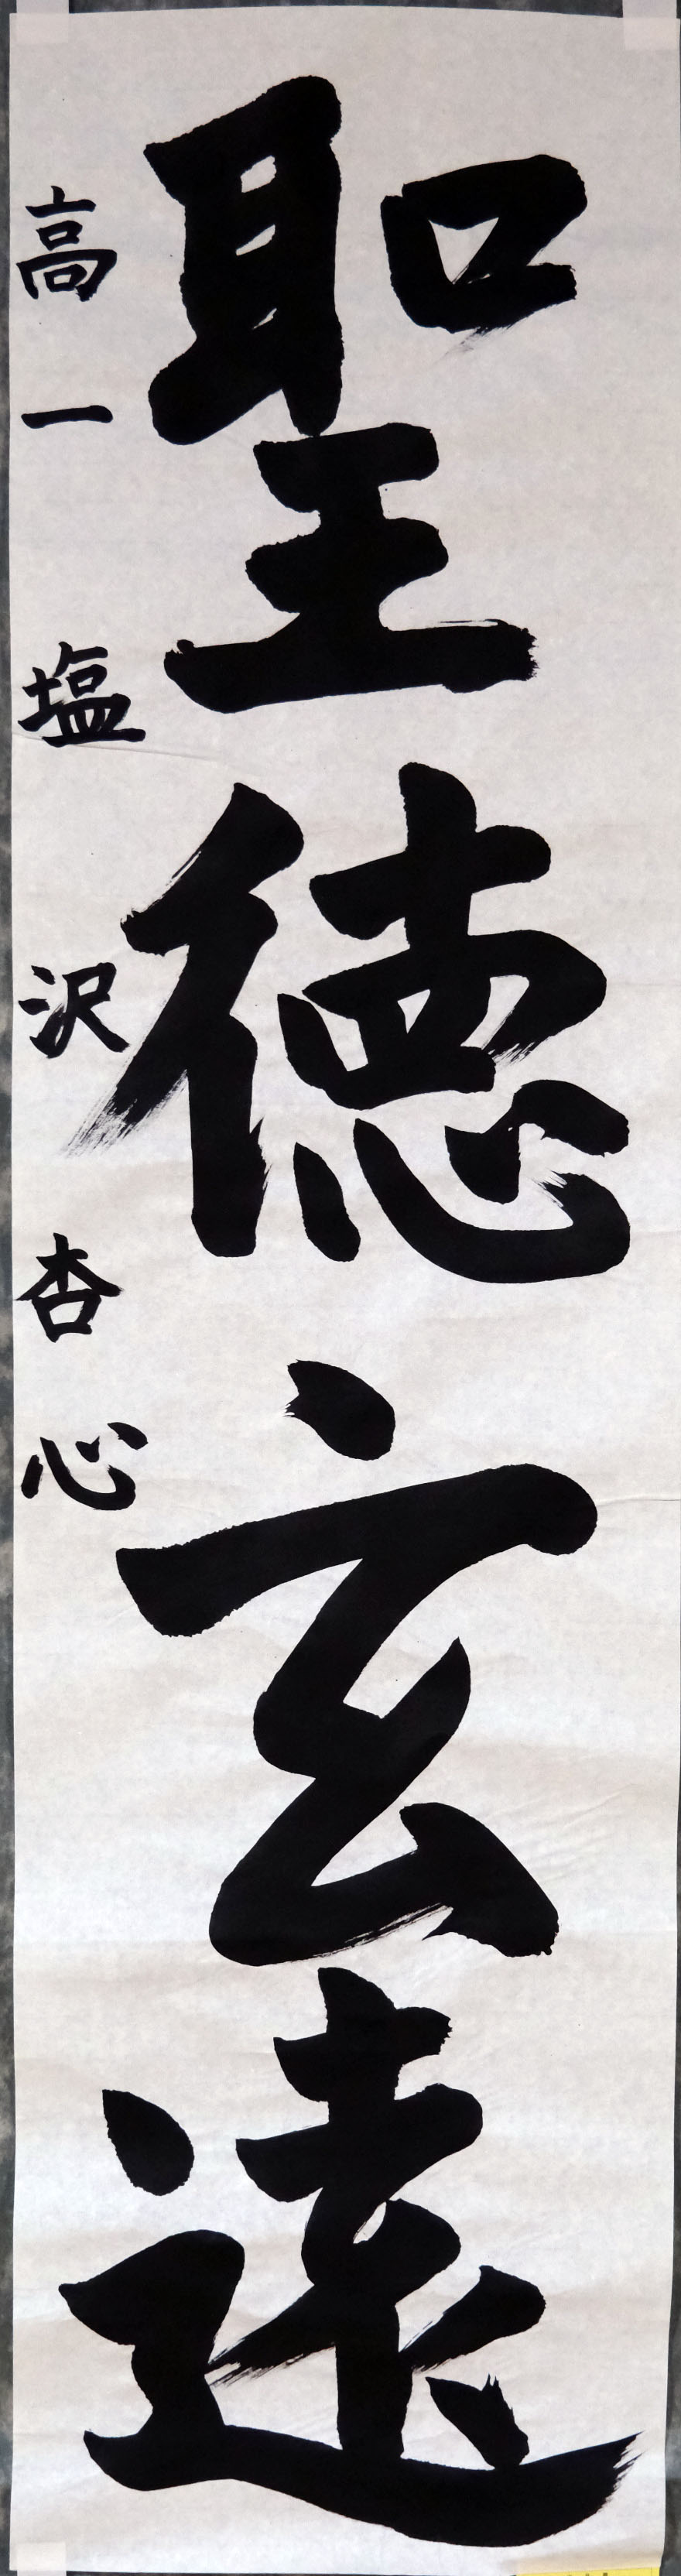 聖徳玄遠
高一 塩沢杏心